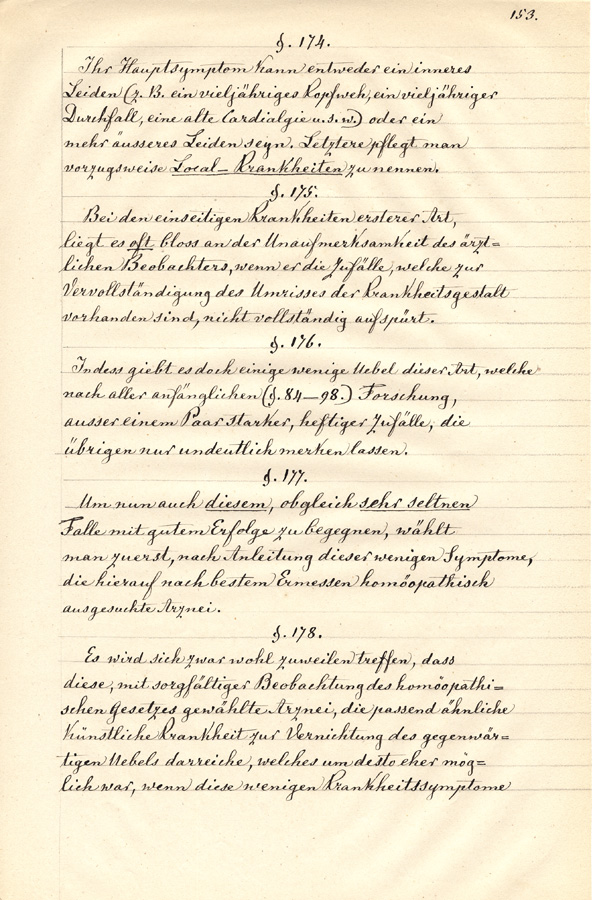 153.
§. 174.
Ihr Hauptsymptom kann entweder ein inneres
Leiden (z. B. ein vieljähriges Kopfweh, ein vieljähriger
Durchfall, eine alte Cardialgie u. s. w.) oder ein
mehr äusseres Leiden seyn. Letztere pflegt man
vorzugsweise Local-Krankheiten zu nennen.
§. 175.
Bei den einseitigen Krankheiten ersterer Art,
liegt es oft bloss an der Unaufmerksamkeit des ärzt=
lichen Beobachters, wenn er die Zufälle, welche zur
Vervollständigung des Umrisses der Krankheitsgestalt
vorhanden sind, nicht vollständig aufspürt.
§. 176.
Indess giebt es doch einige wenige Uebel dieser Art, welche
nach aller anfänglichen (§. 84—98.) Forschung,
ausser einem Paar starker, heftiger Zufälle, die
übrigen nur undeutlich merken lassen.
§. 177.
Um nun auch diesem, obgleich sehr seltnen
Falle mit gutem Erfolge zu begegnen, wählt
man zuerst, nach Anleitung dieser wenigen Symptome,
die hierauf nach bestem Ermessen homöopathisch
ausgesuchte Arznei.
§. 178.
Es wird sich zwar wohl zuweilen treffen, dass
diese, mit sorgfältiger Beobachtung des homöopathi=
schen Gesetzes gewählte Arznei, die passend ähnliche
künstliche Krankheit zur Vernichtung des gegenwär=
tigen Uebels darreiche, welches um desto eher mög=
lich war, wenn diese wenigen Krankheitssymptome